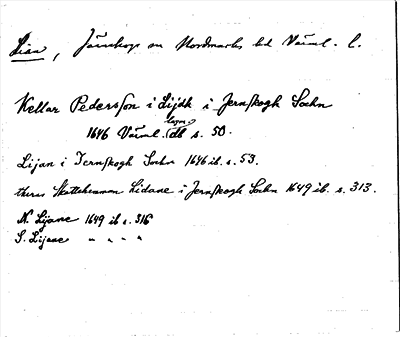 Lian, Järnskogs sn Nordmarks hd Värml. l.
Kettar Pedersson i Lijdh i Jernskogh Sochn
lagm.
1646 Värml. db s. 50.
Lijan i Jernskogh Sochn 1646 ib. s. 53.
theras Skattehemman Lidane i Jernskogh Sochn 1649 ib. s. 313.
N. Lijane 1649 ib s. 316
S. Lijane " " " "